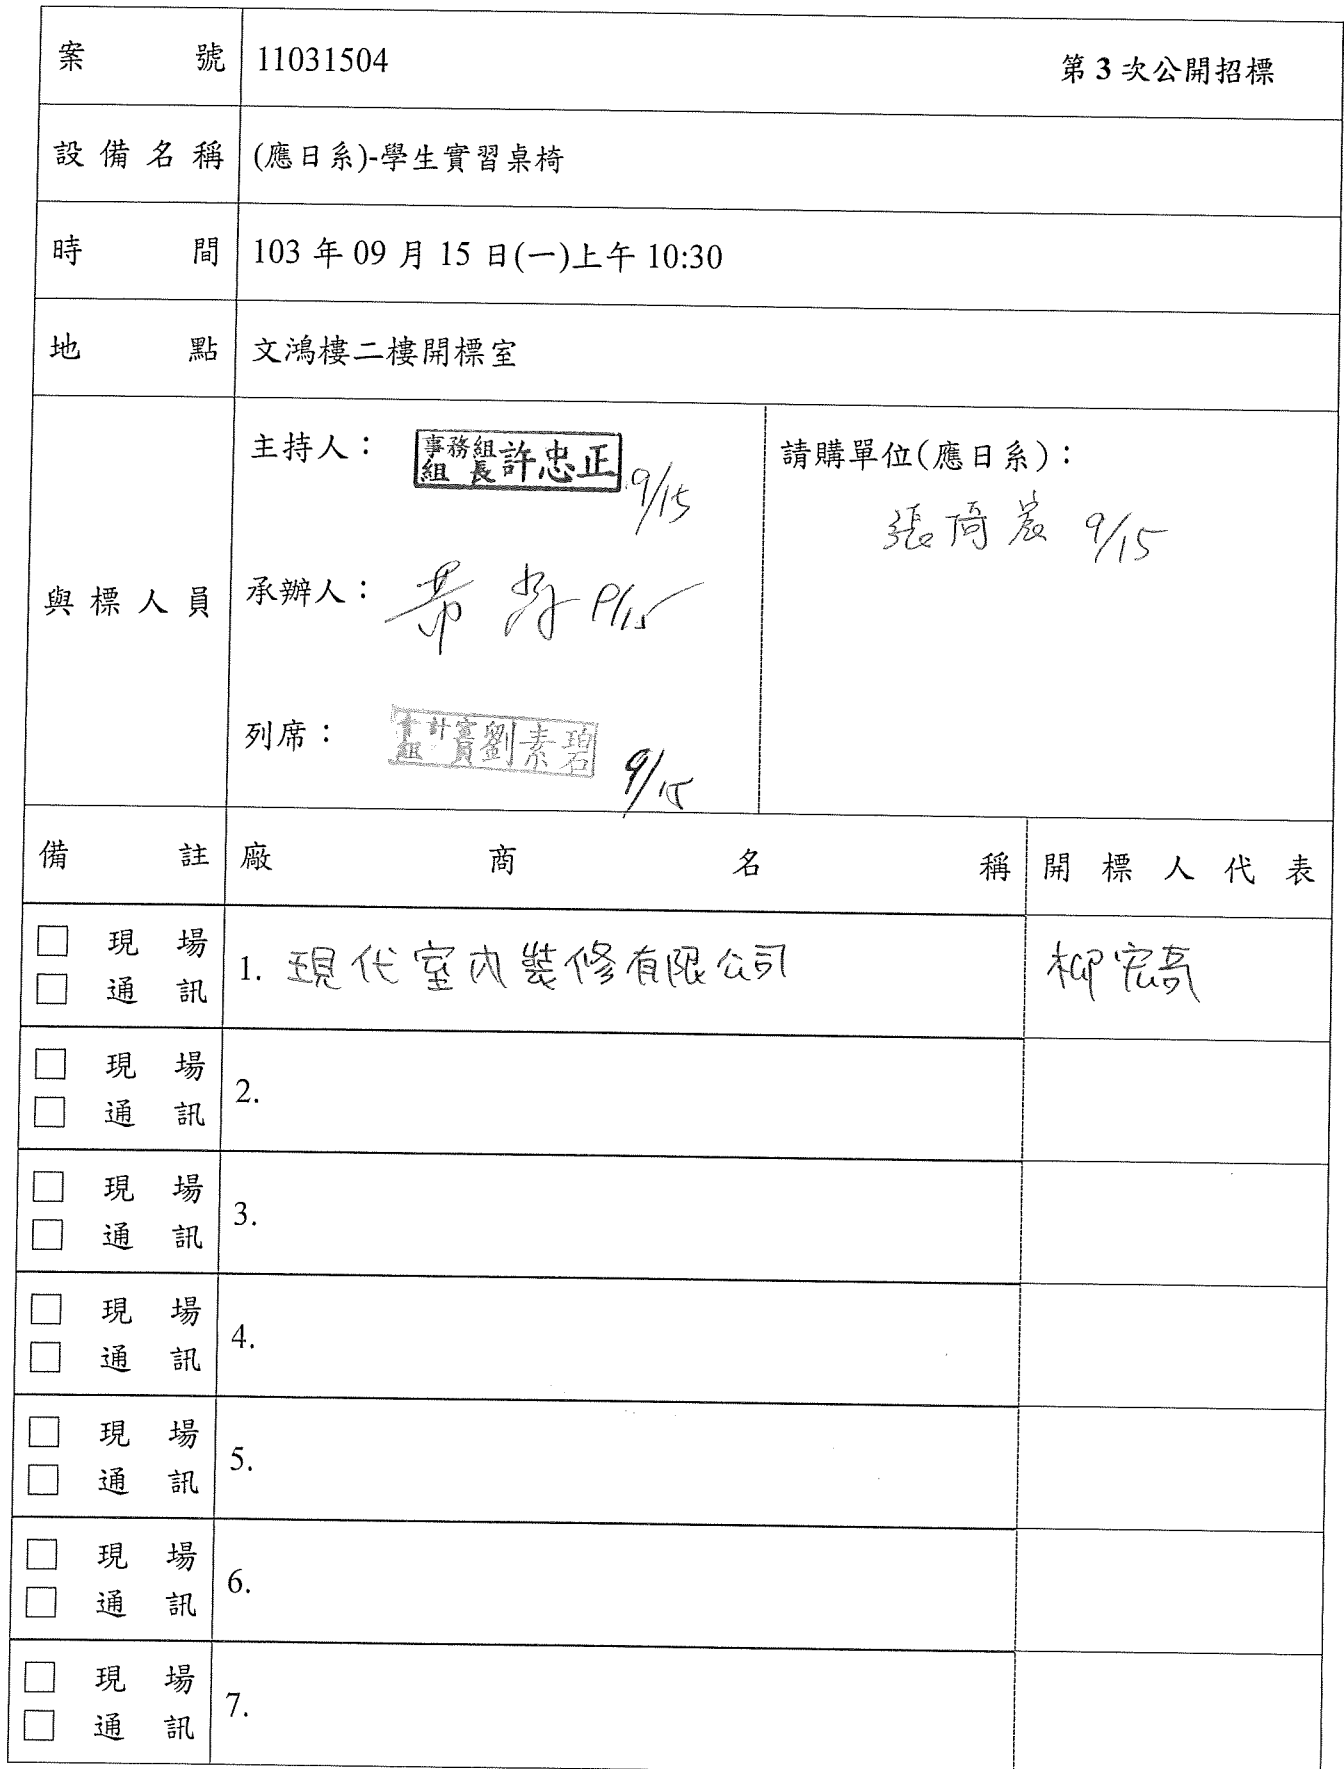 案號 11031504 第3次公開招標
設備名稱 (應日系)-學生實習桌椅
時間 103年09月15日(一)上午10:30
地點 文鴻樓二樓開標室
與標人員
主持人： 事務組組長許忠正 9/15
請購單位(應日系)：
張 9/15
承辦人： 9/15
列席： 劉素碧 9/15
備註 廠商名稱 開標人代表
□ 現場
□ 通訊
1. 現代室內裝修有限公司 柳宏
□ 現場
□ 通訊
2.
□ 現場
□ 通訊
3.
□ 現場
□ 通訊
4.
□ 現場
□ 通訊
5.
□ 現場
□ 通訊
6.
□ 現場
□ 通訊
7.